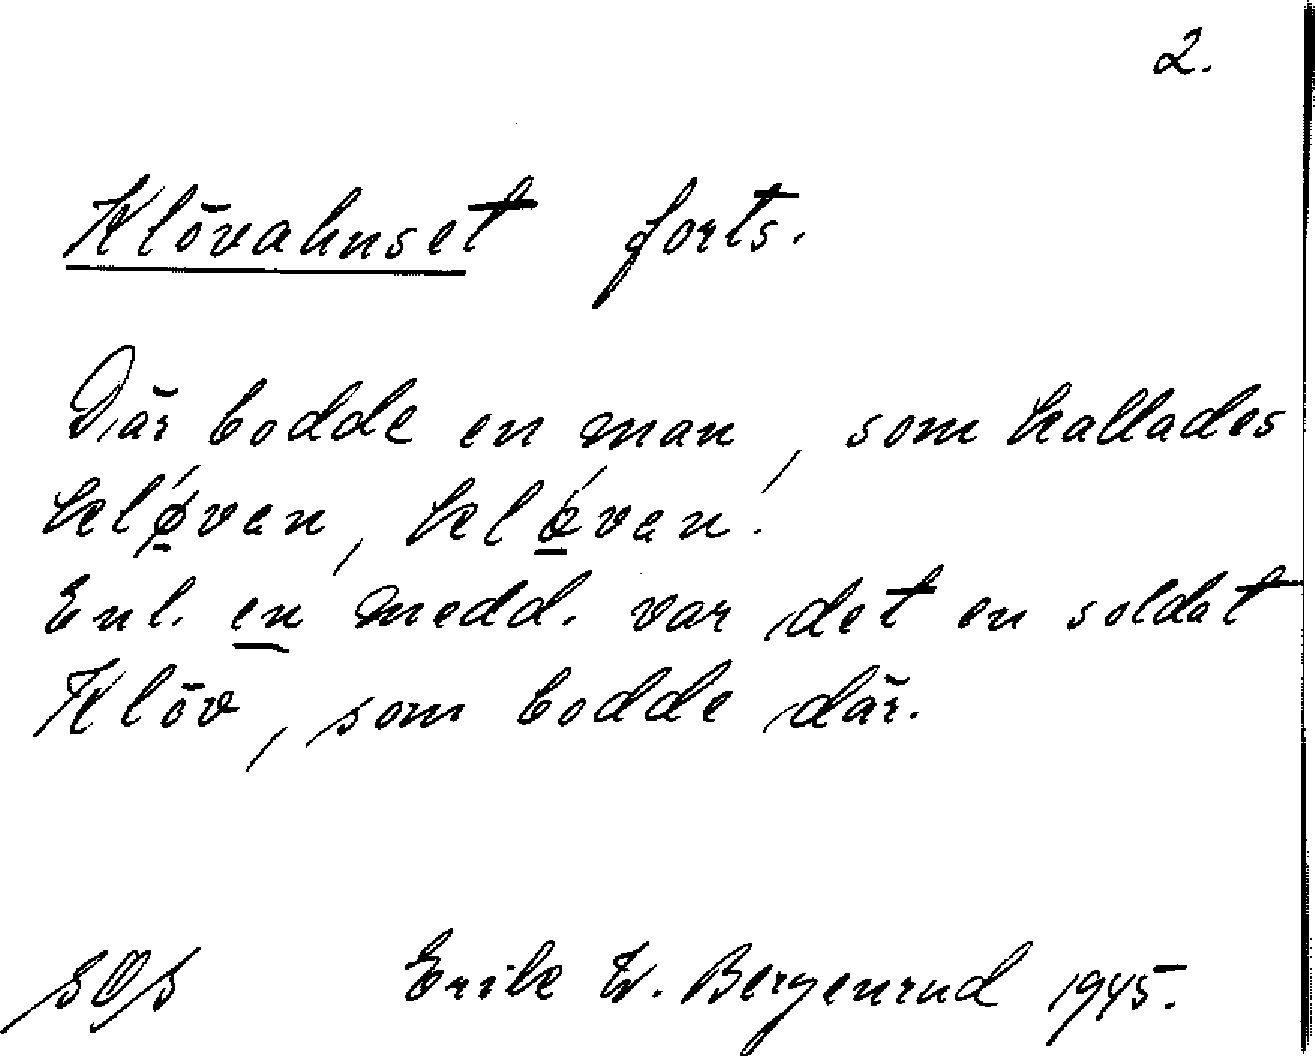 2.
Klövahuset forts.
Där bodde en man, som kallades
klǿ̱van, klœ̱́van!
Enl. en medd. var det en soldat
Klöv, som bodde där.
Erik W. Bergenrud 1945.